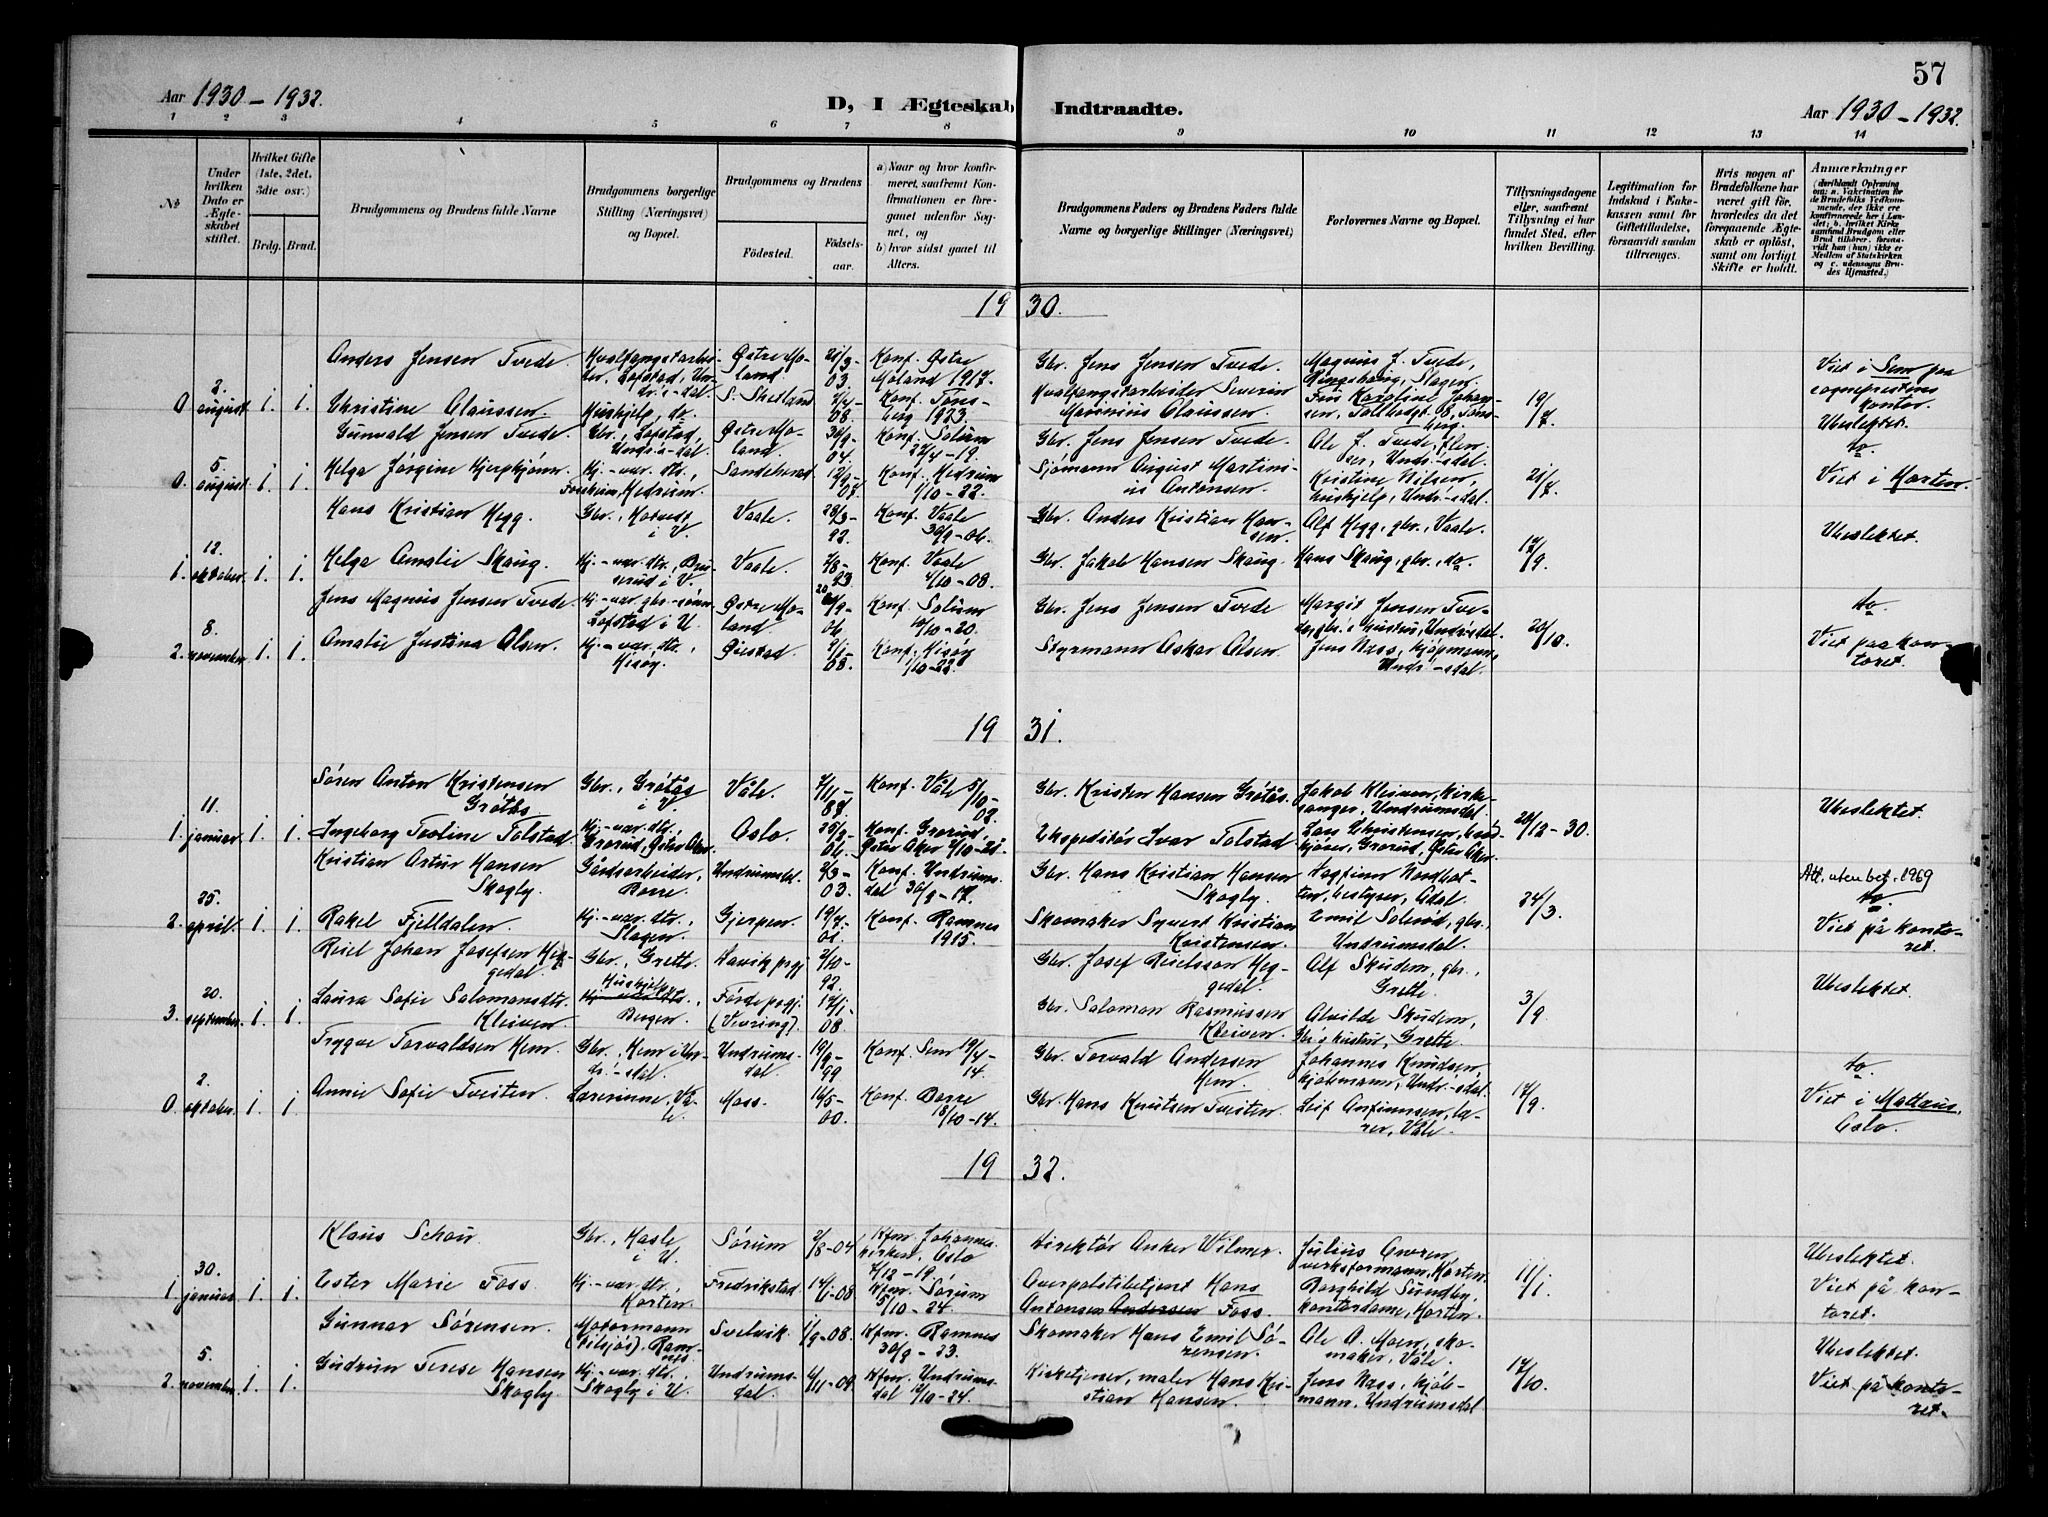 57
Aar 1930 – 1932.
D, I Ægteskab Indtraadte.
Aar 1930 – 1932.
1 2 3 4 5 6 7 8 9 10 11 12 13 14
No
Under hvilken Dato er Ægteskabet stiftet.
Hvilket Gifte (1ste, 2det, 3die osv.)
Brdg. Brud.
Brudgommens og Brudens fulde Navne
Brudgommens borgerlige Stilling (Næringsvei) og Bopæl.
Brudgommens og Brudens
Fødested. Fødselsaar.
a) Naar og hvor konfirmeret, saafremt Konfirmationen er foregaaet udenfor Sognet, og
b) hvor sidst gaaet til Alters.
Brudgommens Faders og Brudens Faders fulde Navne og borgerlige Stillinger (Næringsvei)
Forlovernes Navne og Bopæl.
Tillysningsdagene eller, saafremt Tillysning ei har fundet Sted, efter hvilken Bevilling.
Legitimation for Indskud i Enkekassen samt for Giftetilladelse, forsaavidt saadan tiltrænges.
Hvis nogen af Brudefolkene har været gift før, hvorledes da det foregaaende Ægteskab er opløst, samt om lovligt Skifte er holdt.
Anmærkninger
19 30.
0 2. august. 1. 1.
Anders Jensen Tvede. Hvalfangstarbeider, Lofstad, Undr.s-dal. Østre Moland. 21/3-03. Konf. Østre Moland 1917. Gbr. Jens Jensen Tvede. Magnus J. Tvede, Ringshaug, Slagen. 19/7 Viet i Sem paa sogneprestens kontor.
Christine Claussen. Hushjelp, do. S. Shetland 08. Konf. Tønsberg 1923. Hvalfangstarbeider Severin Claussen. Frk Karoline Johansen, 8, Tønsberg. Ubeslektet.
0. 5. august. 1. 1.
Gunvald Jensen Tvede. Gbr., Lofstad, Undr.s-dal. Østre Moland. 30/9-04. Konf. Solum 27/4-19. Gbr. Jens Jensen Tvede. Ole J. Tvede, Undr.-sdal. 21/7 do.
Helga Jørgine Hj.-vær. dtr. Hedrum. Sandeherad. 12/9-07. Konf. Hedrum 1/10-22. Sjømann August Martinius Antonsen. Kristine Nilsen, hushjelp, Undr.-sdal. Viet i Horten.
1. 12. oktober. 1. 1.
Hans Kristian Hegg. Gbr., i V. Vaale. 28/3-92. Konf. Vaale 30/9-06. Gbr. Anders Kristian Hansen. Alf Hegg, gbr., Vaale. 17/9. Ubeslektet.
Helga Amalie Skaug. Hj.-vær. dtr., i V. Vaale. 7/8-93. Konf. Vaale 4/10-08. Gbr. Jakob Hansen Skaug. Hans Skaug, gbr., do.
2. 8. november. 1. 1.
Jens Magnus Jensen Tvede. Hj.-vær. gbr.-sønn. Lofstad i U. Østre Moland. 06 Konf. Solum 10/10-20. Gbr. Jens Jensen Tvede Margit Jensen Tvede, gbr.s hustru, Undr.sdal. 20/10. do.
Amalie Justina Olsen. Hj.-vær. dtr., Hisøy. Øiestad. 9/1-08. Konf. Hisøy 1/10-22. Styrmann Oskar Olsen. Jens Nass, kjøpmann, Undr.-sdal. Viet paa kontoret.
19 31.
1. 11. januar. 1. 1.
Søren Anton Kristensen Grøtås Gbr., Grøtås i V. Våle. 7/11-87 Konf. Våle 5/10-02. Gbr. Kristen Hansen Grøtås. Jakob Kleiven, Kirkesanger, Undrumsdal. 20/12-30. Ubeslektet.
Ingeborg Teoline Tolstad. Hj.-vær. dtr. Grorud, Østre Aker. Oslo. 25/3-06. Konf. Grorud, Østre Aker 2/10-21. Ekspeditør Ivar Tolstad. Lars Christensen, Grorud, Østre Aker.
2. 25. april. 1. 1.
Kristian Artur Hansen Skogly. Gårdsarbeider, Borre. Undrumsdal. 2/3-03. Konf. Undrumsdal 30/9-17. Gbr. Hans Kristian Hansen Skogly. Dagfinn Nordbotten, bestyrer, Ådal. 24/3. Att. uten bet. 1969 do.
Rakel Fjelldalen. Hj.-vær. dtr., Slagen. Gjerpen. 19/7-01. Konf. Ramnes 1915. Skomaker Syvert Kristian Kristensen. Emil Solerød, gbr., Undrumsdal. Viet på kontoret.
3. 20. september. 1. 1.
Reiel Johan Josefsen Heggedal. Gbr., Grette. Havik prgj. 2/10-92. Gbr. Josef Reielsson Heggedal. Alf Skudem, gbr., Grette. 3/9. Ubeslektet.
Laura Sofie Salomonsdtr. Kleiven. Hushjelp, Bergen. Førde prgj. (Vevring). 17/1-08 Gbr. Salomon Rasmussen Kleiven. Alvilde Skudem, Gbr.s hustru, Grette.
0 2. oktober. 1. 1.
Trygve Torvaldsen Hem. Gbr., Hem i Undr.-sdal. Undrumsdal. 19/9-99 Konf. Sem 19/4-14. Gbr. Torvald Andersen Hem. Johannes Knudsen, kjøbmann, Undr.-sdal. 17/9. do.
Annie Sofie Tveiten. Lærerinne, Våle. Moss. 16/5-00. Konf. Borre 18/10-14. Gbr. Hans Knutsen Tveiten. Leif Anfinnsen, lærer, Våle. Viet i Mattæus. Oslo.
19 32.
1 30. januar. 1. 1.
Klaus Schou. Gbr., Hasle i U. Sørum 2/8-04 Kfm. Johanneskirken, Oslo 7/12-19. Direktør Anker Wilmer. Julius Gvoren, verksformann, Horten. 11/1. Ubeslektet.
Ester Marie Foss. Hj.-vær. dtr., Horten. Fredrikstad. 14/1-08 Kfm. Sørum 5/10-24. Overpolitibetjent Hans Antonsen Andersen Foss. Borghild Sundby, kontordame, Horten. Viet på kontoret.
2. 5. november. 1. 1.
Gunnar Sørensen. Motormann Ramnes. Svelvik. 1/9-08. Kfm. Ramnes 30/9-23. Skomaker Hans Emil Sørensen. Ole A. Moen, skomaker, Våle. 17/10. Ubeslektet.
Gudrun Terese Hansen Skogly. Hj.-vær. dtr. Skogly i U. Undrumsdal. 4/11-09 Kfm. Undrumsdal 12/10-24. Kirketjener, maler Hans Kristian Hansen. Jens Nass, kjøbmann, Undrumsdal Viet på kontoret.